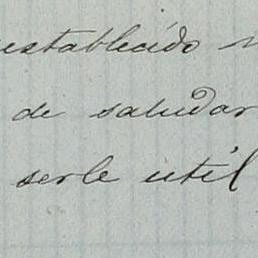 establecido
de saludar
serle util